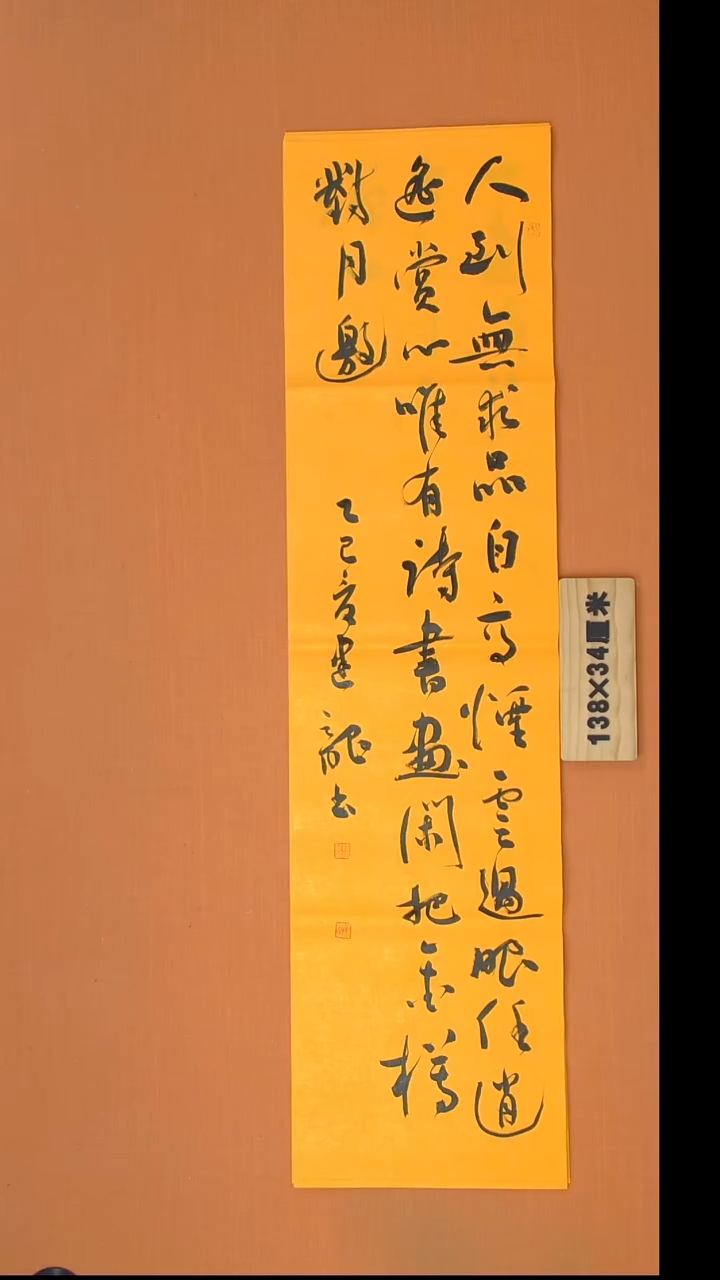 人到無求品自高煙雲過眼任逍
遙賞心唯有詩書畫閑把金樽
對月邀
乙巳夏建龍書
138×34厘米